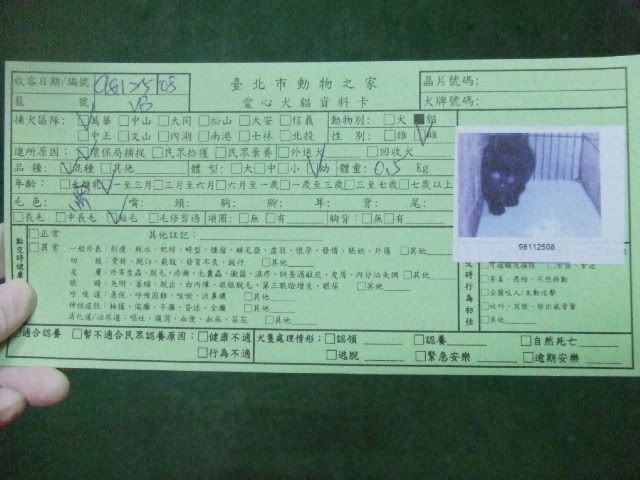 收容日期/編號 981125 08 臺北市動物之家 晶片號碼:
籠號 愛心犬貓資料卡 犬牌號碼:
捕犬區隊: ☑萬華 □中山 □大同 □松山 □大安 □信義 動物別: □犬 ■貓
□中正 □文山 □內湖 □南港 □士林 □北投 性別: □雄 ☑雌
進所原因: ☑環保局捕捉 □民眾拾獲 □民眾棄養 □外送犬 □回收犬
品種: ☑混種 □其他 體型: □大 □中 □小 ☑幼 體重: 0.5 Kg
年齡: □未離乳 ☑一至三月 □三月至六月 □六月至一歲 □一歲至三歲 □三至七歲 □七歲以上
毛色: 黑 嘴: 頭: 胸: 腳: 耳: 背: 尾:
□長毛 □中長毛 ☑短毛 □毛修剪過 項圈: □無 □有 胸背: □無 □有
點交時健康 □正常 其他註記:
□異常 一般外表: 削瘦、脫水、肥胖、畸型、腫瘤、赫尼亞、虛弱、懷孕、發情、脹奶、外傷 □其他
四肢: 骨折、脫臼、截肢、發育不良、跛行 □其他
皮膚: 外寄生蟲、脫毛、疥癬、毛囊蟲、黴菌、濕疹、跳蚤過敏症、皮屑、內分泌失調 □其他
眼睛: 失明、萎縮、脫出、白內障、眼瞼脫毛、第三眼瞼增生、眼屎 □其他
呼吸道: 急促、呼吸困難、咳嗽、流鼻膿 □其他
神經症狀: 抽搐、偏癱、半癱、昏迷、全癱 □其他
消化道/泌尿道: 嘔吐、腹瀉、血便、血尿、菜花 □其他
98112508
交時行為初估
□害羞、畏縮、不想移動
□企圖咬人/主動攻擊
□吠叫、哭號、發出威脅聲
□其他
□適合認養 □暫不適合民眾認養原因: □健康不適 □行為不適
犬隻處理情形: □認領 □認養 □自然死亡
□逃脫 □緊急安樂 □逾期安樂